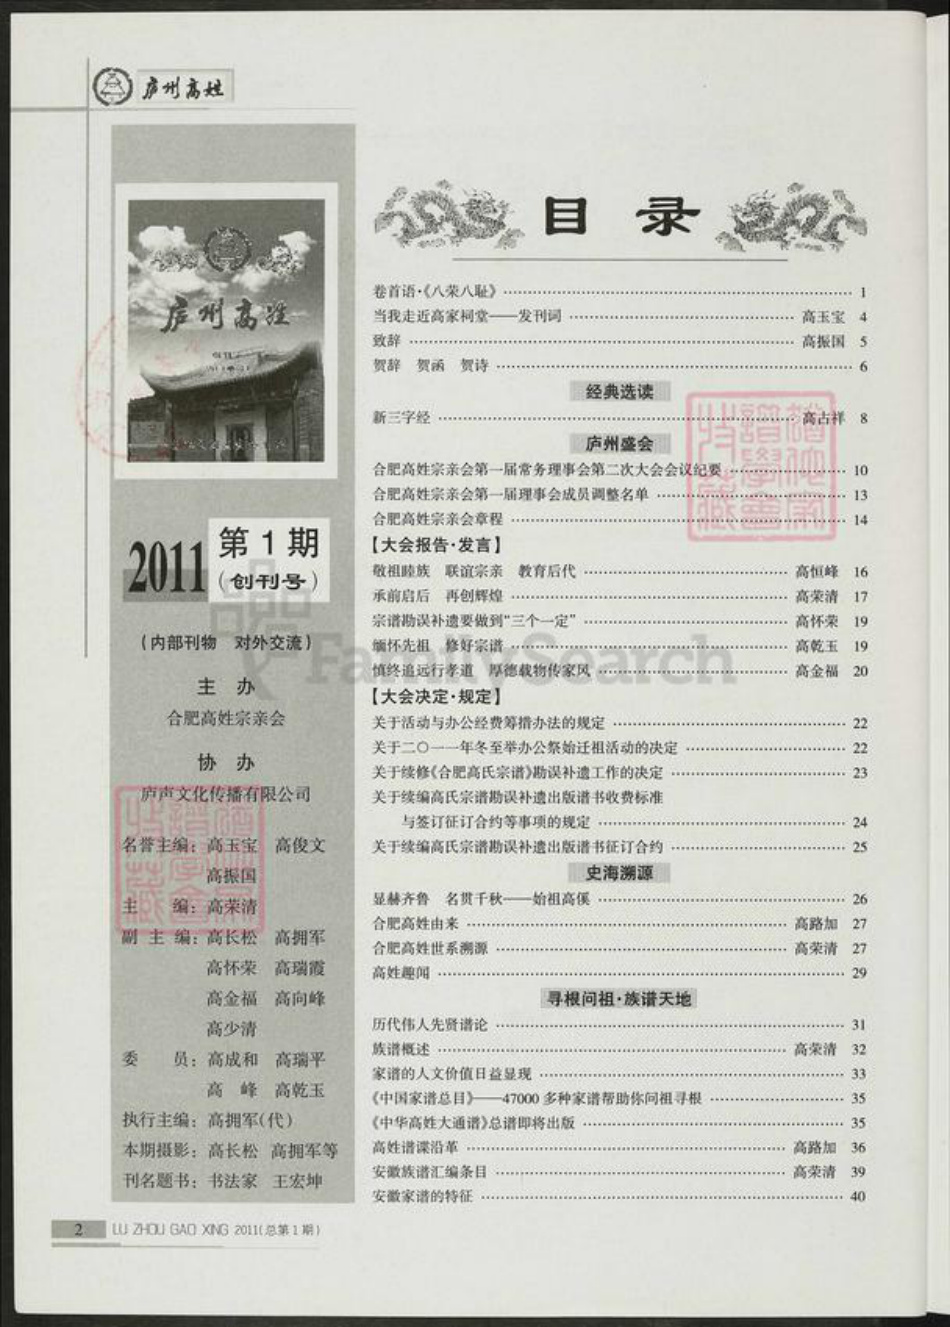 庐州高姓
庐州高姓
2011
第1期
(创刊号)
(内部刊物 对外交流)
主 办
合肥高姓宗亲会
协 办
庐声文化传播有限公司
名誉主编：高玉宝 高俊文
高振国
主 编：高荣清
副 主 编：高长松 高拥军
高怀荣 高瑞霞
高金福 高向峰
高少清
委 员：高成和 高瑞平
高 峰 高乾玉
执行主编：高拥军(代)
本期摄影：高长松 高拥军等
刊名题书：书法家 王宏坤
目 录
卷首语·《八荣八耻》 1
当我走近高家祠堂——发刊词 高玉宝 4
致辞 高振国 5
贺辞 贺函 贺诗 6
经典选读
新三字经 高占祥 8
庐州盛会
合肥高姓宗亲会第一届常务理事会第二次大会会议纪要 10
合肥高姓宗亲会第一届理事会成员调整名单 13
合肥高姓宗亲会章程 14
【大会报告·发言】
敬祖睦族 联谊宗亲 教育后代 高恒峰 16
承前启后 再创辉煌 高荣清 17
宗谱勘误补遗要做到“三个一定” 高怀荣 19
缅怀先祖 修好宗谱 高乾玉 19
慎终追远行孝道 厚德载物传家风 高金福 20
【大会决定·规定】
关于活动与办公经费筹措办法的规定 22
关于二〇一一年冬至举办公祭始迁祖活动的决定 22
关于续修《合肥高氏宗谱》勘误补遗工作的决定 23
关于续编高氏宗谱勘误补遗出版谱书收费标准
与签订征订合约等事项的规定 24
关于续编高氏宗谱勘误补遗出版谱书征订合约 25
史海溯源
显赫齐鲁 名贯千秋——始祖高傒 26
合肥高姓由来 高路加 27
合肥高姓世系溯源 高荣清 27
高姓趣闻 29
寻根问祖·族谱天地
历代伟人先贤谱论 31
族谱概述 高荣清 32
家谱的人文价值日益显现 33
《中国家谱总目》——47000多种家谱帮助你问祖寻根 35
《中华高姓大通谱》总谱即将出版 35
高姓谱谍沿革 高路加 36
安徽族谱汇编条目 高荣清 39
安徽家谱的特征 40
2 LU ZHOU GAO XING 2011(总第1期)
FamilySearch